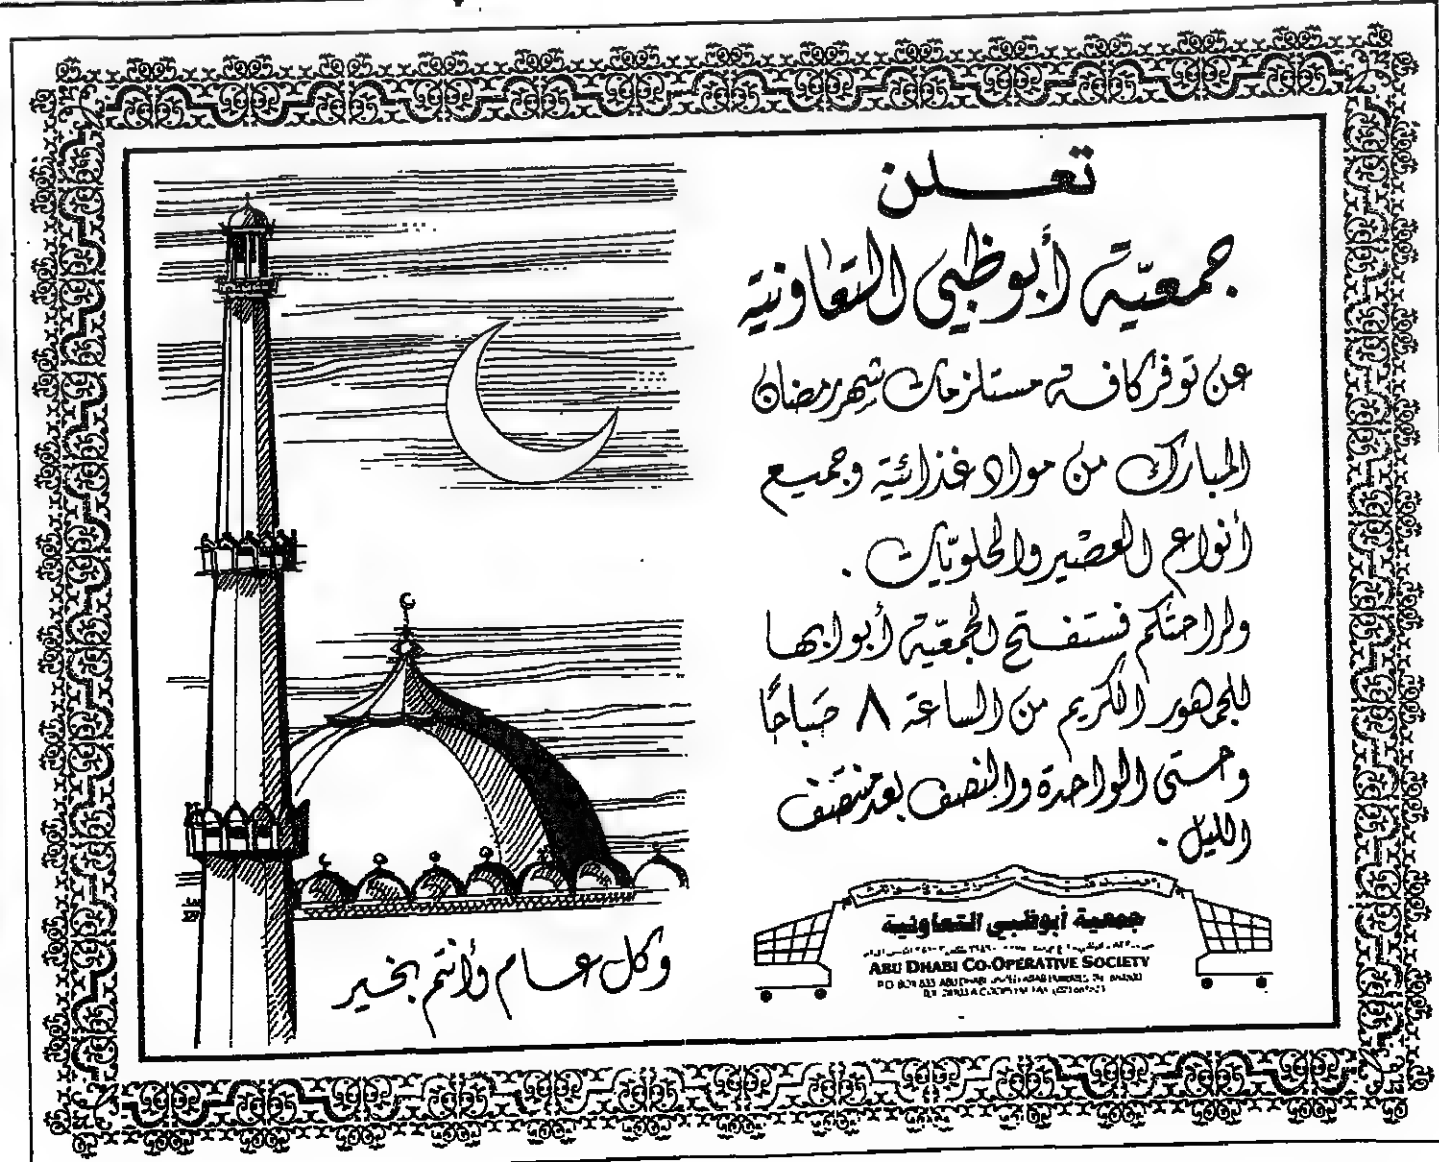 تعلن
جمعيّة أبوظبي التعاونيّة
عن توفر كافة مستلزمات شهر رمضان
المبارك من مواد غذائيّة وجميع
أنواع العصير والحلويّات .
ولراحتكم فستفتح الجمعيّة أبوابها
للجمهور الكريم من الساعة ٨ صَباحًا
وحتى الواحدة والنصف بعد منتصف
الليل .
جمعية أبوظبي التعاونية
ABU DHABI CO-OPERATIVE SOCIETY
P.O. BOX 833 ABU DHABI
وكل عام وأنتم بخير